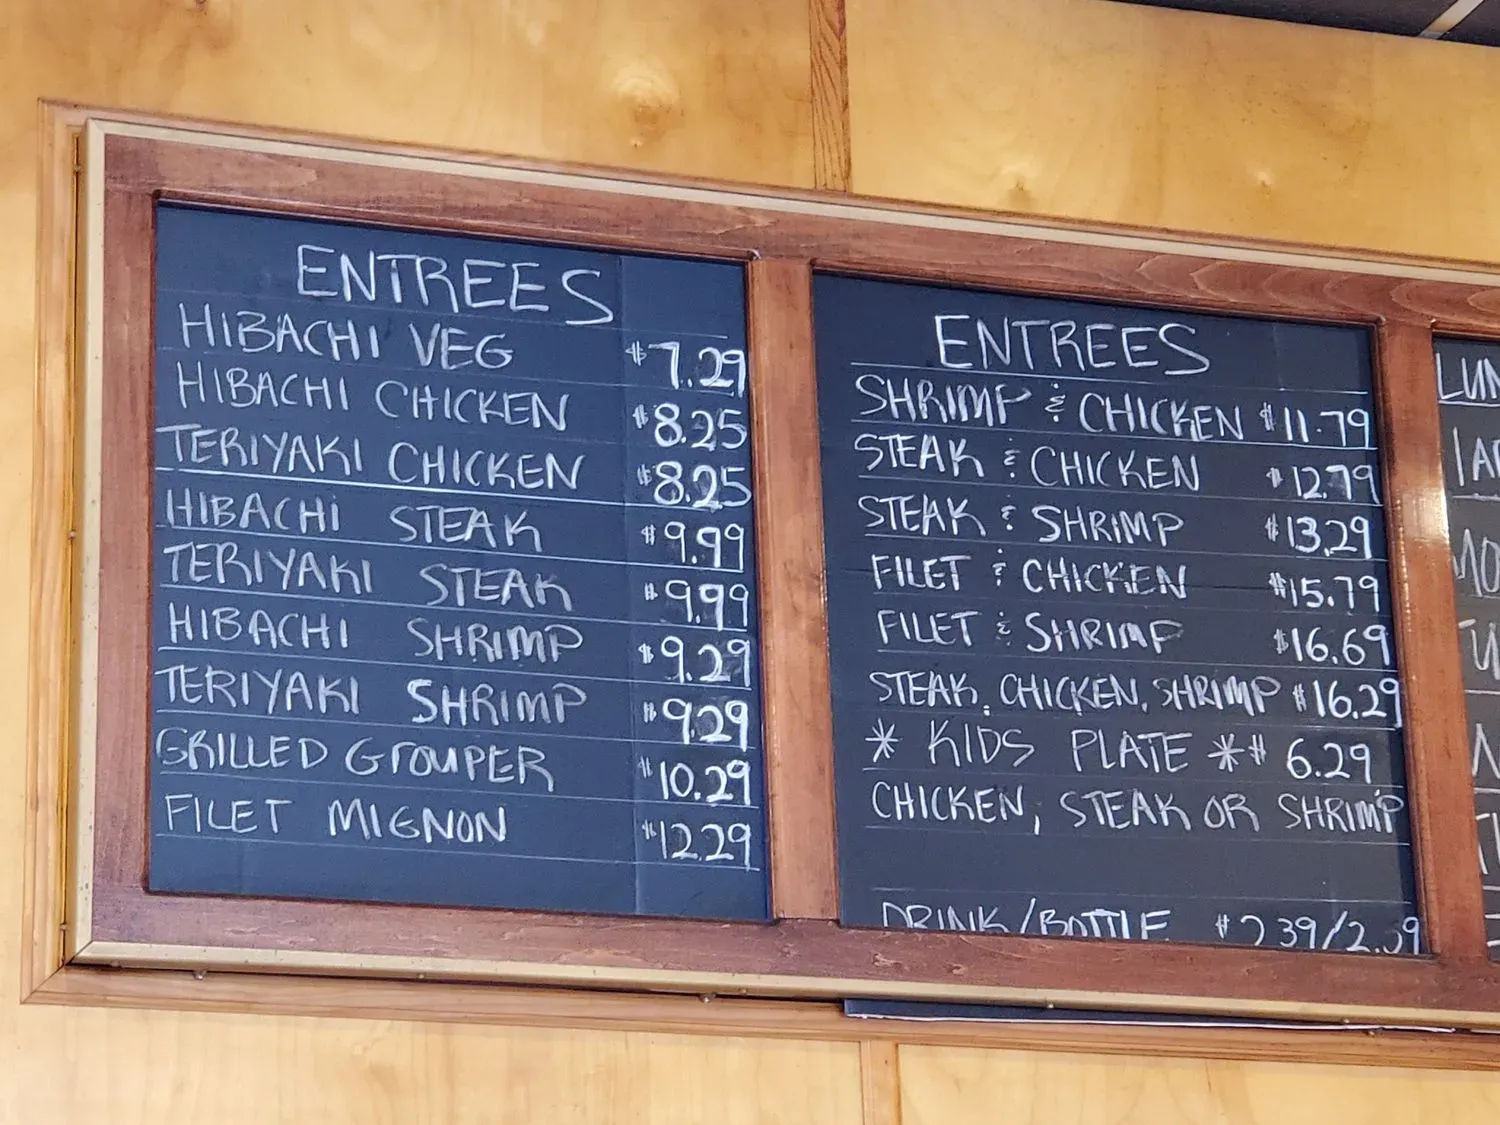 ENTREES
HIBACHI VEG $7.29
HIBACHI CHICKEN $8.25
TERIYAKI CHICKEN $8.25
HIBACHI STEAK $9.99
TERIYAKI STEAK $9.99
HIBACHI SHRIMP $9.29
TERIYAKI SHRIMP $9.29
GRILLED GROUPER $10.29
FILET MIGNON $12.29
ENTREES
SHRIMP & CHICKEN $11.79
STEAK & CHICKEN $12.79
STEAK & SHRIMP $13.29
FILET & CHICKEN $15.79
FILET & SHRIMP $16.69
STEAK, CHICKEN, SHRIMP $16.29
* KIDS PLATE * $6.29
CHICKEN, STEAK OR SHRIMP
DRINK/BOTTLE $2.39/